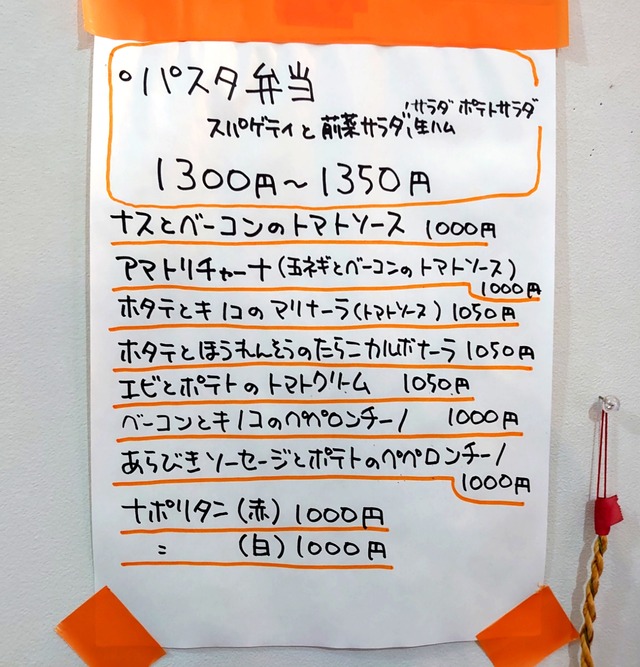 °パスタ弁当
サラダ ポテトサラダ
スパゲティと前菜サラダ、生ハム
1300円～1350円
ナスとベーコンのトマトソース 1000円
アマトリチャーナ(玉ネギとベーコンのトマトソース)
1000円
ホタテとキノコのマリナーラ(トマトソース) 1050円
ホタテとほうれんそうのたらこカルボナーラ 1050円
エビとポテトのトマトクリーム 1050円
ベーコンとキノコのペペロンチーノ 1000円
あらびきソーセージとポテトのペペロンチーノ
1000円
ナポリタン(赤) 1000円
〃 (白) 1000円